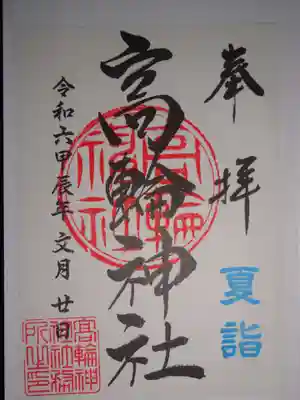 奉拝
夏詣
高輪神社
令和六甲辰年文月廿日
高輪神
社社務
所之印